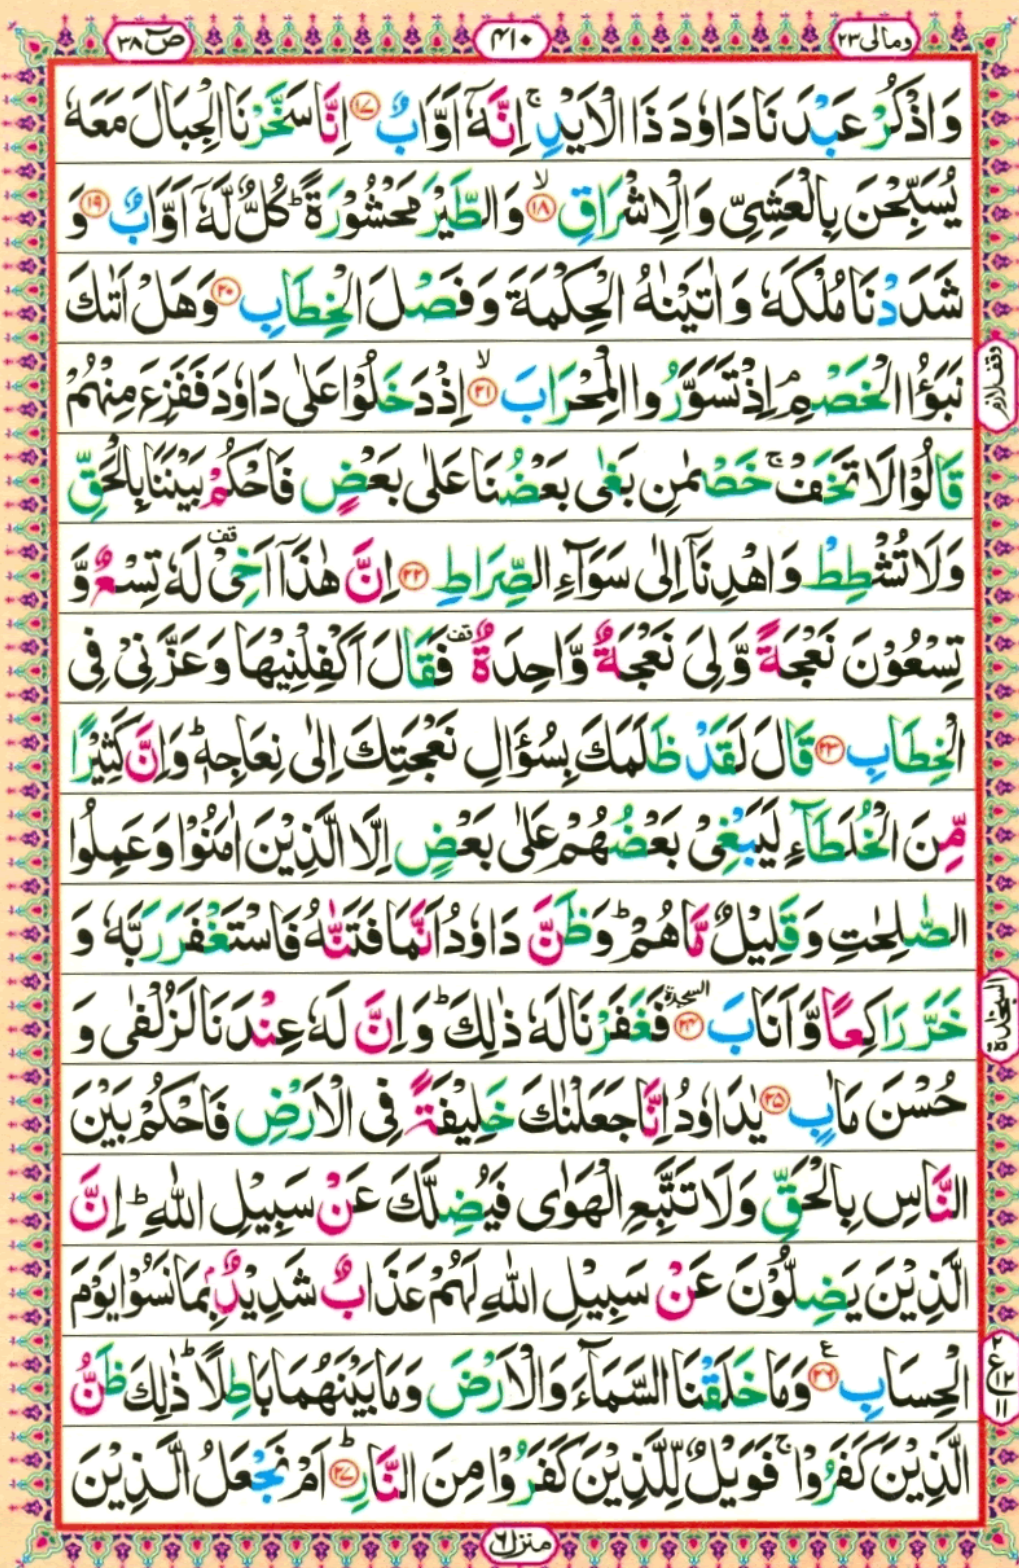 ومالی ۲۳
۴۱۰
صٓ ۳۸
وَاذْكُرْ عَبْدَنَا دَاوٗدَ ذَا الْاَيْدِ ۚ اِنَّهٗۤ اَوَّابٌ ۱۷ اِنَّا سَخَّرْنَا الْجِبَالَ مَعَهٗ
يُسَبِّحْنَ بِالْعَشِيِّ وَالْاِشْرَاقِ ۙ ۱۸ وَالطَّيْرَ مَحْشُوْرَةً ؕ كُلٌّ لَّهٗۤ اَوَّابٌ ۱۹ وَ
شَدَدْنَا مُلْكَهٗ وَاٰتَيْنٰهُ الْحِكْمَةَ وَفَصْلَ الْخِطَابِ ۲۰ وَهَلْ اَتٰىكَ
نَبَؤُا الْخَصْمِ ۘ اِذْ تَسَوَّرُوا الْمِحْرَابَ ۙ ۲۱ اِذْ دَخَلُوْا عَلٰى دَاوٗدَ فَفَزِعَ مِنْهُمْ
وقف لازم
قَالُوْا لَا تَخَفْ ۚ خَصْمٰنِ بَغٰى بَعْضُنَا عَلٰى بَعْضٍ فَاحْكُمْ بَيْنَنَا بِالْحَقِّ
وَلَا تُشْطِطْ وَاهْدِنَاۤ اِلٰى سَوَآءِ الصِّرَاطِ ۲۲ اِنَّ هٰذَاۤ اَخِيْ قف لَهٗ تِسْعٌ وَّ
تِسْعُوْنَ نَعْجَةً وَّلِيَ نَعْجَةٌ وَّاحِدَةٌ قف فَقَالَ اَكْفِلْنِيْهَا وَعَزَّنِيْ فِى
الْخِطَابِ ۲۳ قَالَ لَقَدْ ظَلَمَكَ بِسُؤَالِ نَعْجَتِكَ اِلٰى نِعَاجِهٖ ؕ وَاِنَّ كَثِيْرًا
مِّنَ الْخُلَطَآءِ لَيَبْغِيْ بَعْضُهُمْ عَلٰى بَعْضٍ اِلَّا الَّذِيْنَ اٰمَنُوْا وَعَمِلُوا
الصّٰلِحٰتِ وَقَلِيْلٌ مَّا هُمْ ؕ وَظَنَّ دَاوٗدُ اَنَّمَا فَتَنّٰهُ فَاسْتَغْفَرَ رَبَّهٗ وَ
خَرَّ رَاكِعًا وَّاَنَابَ السجدة ۲۴ فَغَفَرْنَا لَهٗ ذٰلِكَ ؕ وَاِنَّ لَهٗ عِنْدَنَا لَزُلْفٰى وَ
السجدة
حُسْنَ مَاٰبٍ ۲۵ يٰدَاوٗدُ اِنَّا جَعَلْنٰكَ خَلِيْفَةً فِى الْاَرْضِ فَاحْكُمْ بَيْنَ
النَّاسِ بِالْحَقِّ وَلَا تَتَّبِعِ الْهَوٰى فَيُضِلَّكَ عَنْ سَبِيْلِ اللّٰهِ ؕ اِنَّ
الَّذِيْنَ يَضِلُّوْنَ عَنْ سَبِيْلِ اللّٰهِ لَهُمْ عَذَابٌ شَدِيْدٌۢ بِمَا نَسُوْا يَوْمَ
الْحِسَابِ ۲۶ ع وَمَا خَلَقْنَا السَّمَآءَ وَالْاَرْضَ وَمَا بَيْنَهُمَا بَاطِلًا ؕ ذٰلِكَ ظَنُّ
۲ ع ۱۲ ۱۱
الَّذِيْنَ كَفَرُوْا ۚ فَوَيْلٌ لِّلَّذِيْنَ كَفَرُوْا مِنَ النَّارِ ؕ ۲۷ اَمْ نَجْعَلُ الَّذِيْنَ
منزل ۶